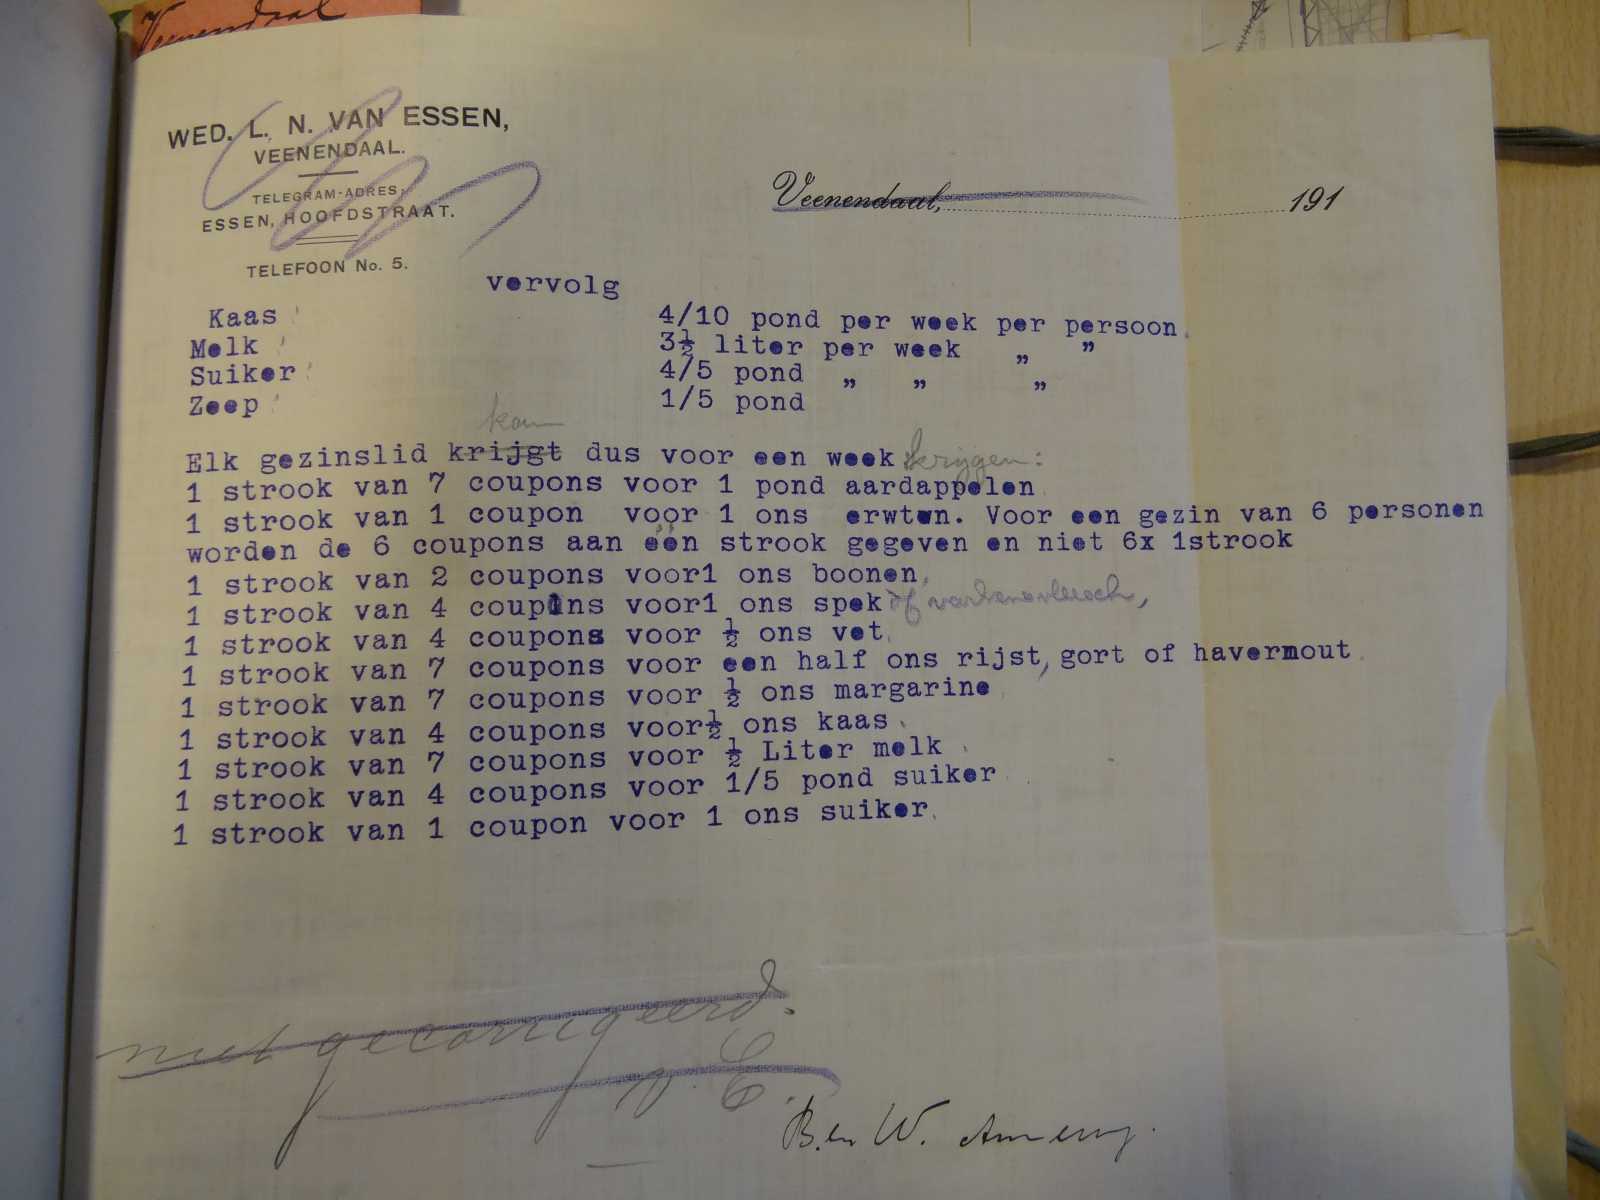 Veenendaal
WED. L. N. VAN ESSEN,
VEENENDAAL.
TELEGRAM-ADRES:
ESSEN, HOOFDSTRAAT.
TELEFOON No. 5.
Veenendaal, 191
vervolg
Kaas 4/10 pond per week per persoon.
Melk 3½ liter per week „ „
Suiker 4/5 pond „ „ „
Zeep 1/5 pond
kan
Elk gezinslid krijgt dus voor een week krijgen:
1 strook van 7 coupons voor 1 pond aardappelen
1 strook van 1 coupon voor 1 ons erwten. Voor een gezin van 6 personen
worden de 6 coupons aan één strook gegeven en niet 6x 1strook
1 strook van 2 coupons voor1 ons boonen,
1 strook van 4 coupons voor1 ons spek of varkensvleesch,
1 strook van 4 coupons voor ½ ons vet.
1 strook van 7 coupons voor een half ons rijst, gort of havermout.
1 strook van 7 coupons voor ½ ons margarine.
1 strook van 4 coupons voor½ ons kaas.
1 strook van 7 coupons voor ½ Liter melk.
1 strook van 4 coupons voor 1/5 pond suiker.
1 strook van 1 coupon voor 1 ons suiker.
niet gecorrigeerd.
v. E.
Ben W.